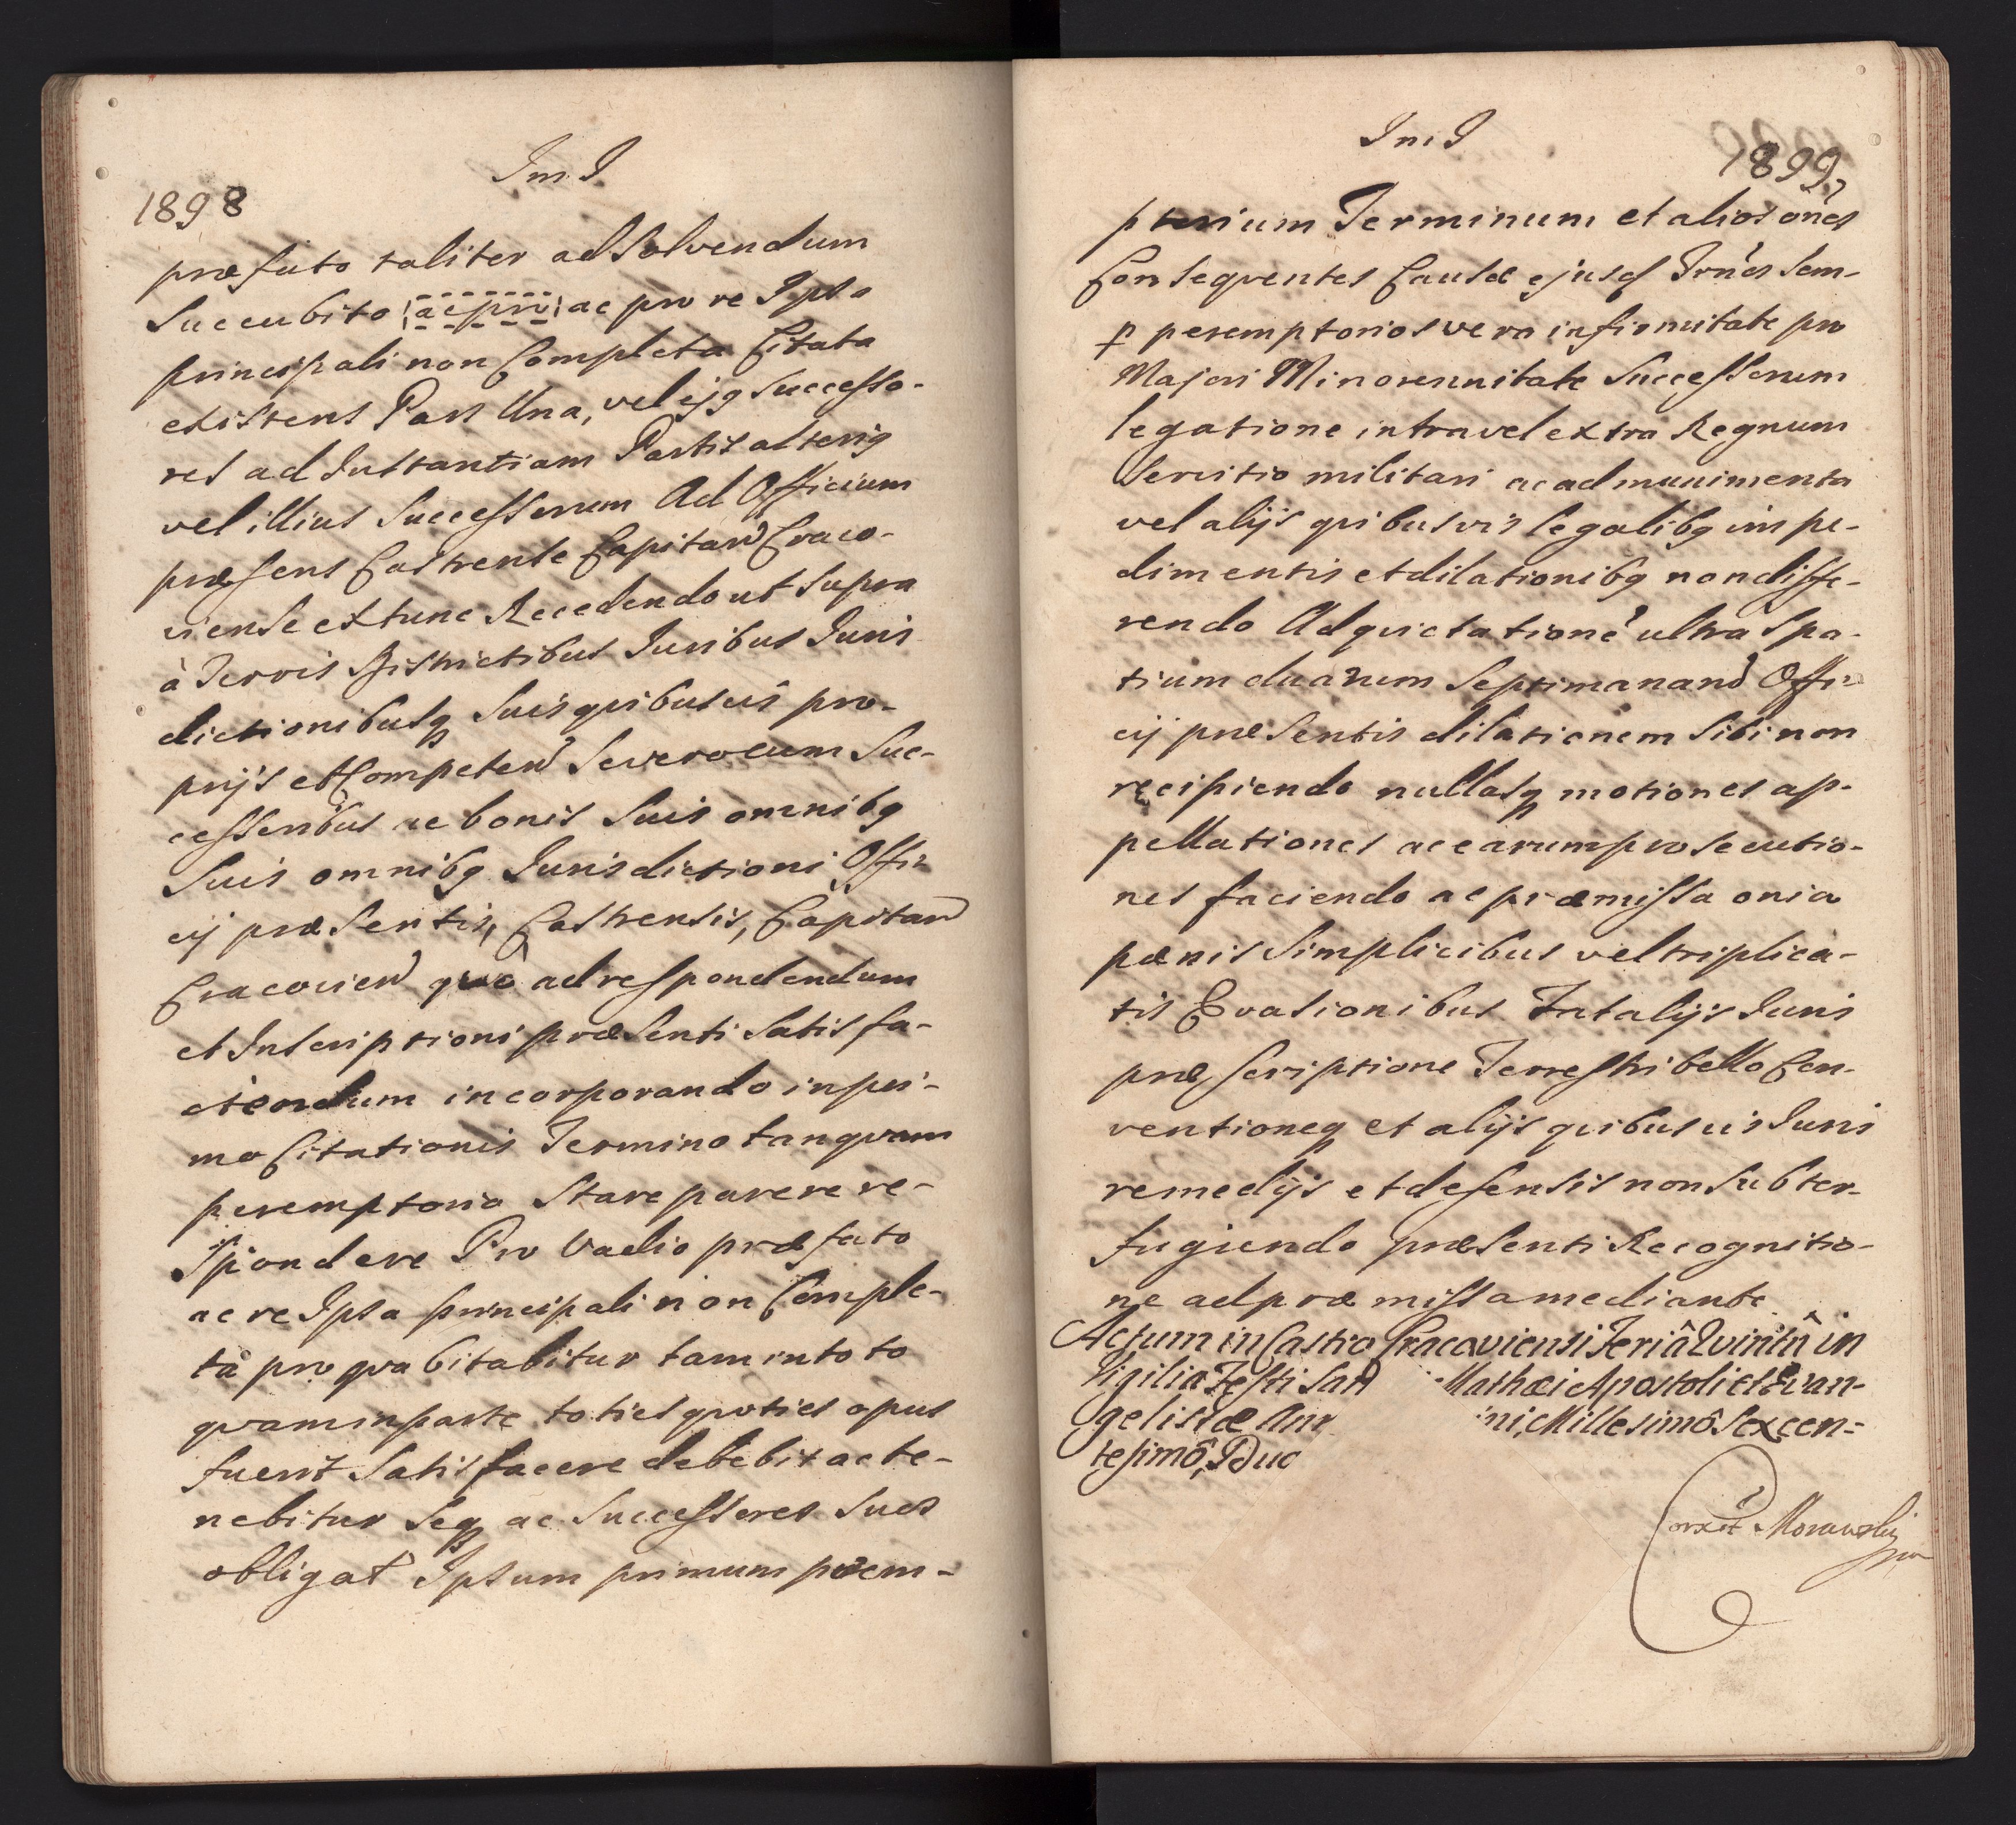 Im. I.
1898
præfato taliter ad Solvendum
Succubito ac pro ac pro re Ipsa
principali non Completa Citata
existens Pars Una, vel ejq Successo-
res ad Instantiam Partis alteriq
vel illius Successorum Ad Officium
præsens Castrense Capitan Craco-
viense ex tunc Recedendo ut Supra
à Terris Districtibus Juribus Juris
dictionibusq Suis quibusvis pro-
prijs et Competen Severo cum Suc-
cessoribus ac bonis Suis omnibq
Suis omnibq Jurisdictioni Offi-
cij præsentis, Castrensis, Capitan
Cracovien quo ad respondendum
et Inscriptioni præsenti Satis fa-
ciendum incorporando in pri-
mo Citationis Termino tanquam
peremptorio Stare parere re-
spondere Pro Vadio præfato
ac re Ipsa principali non Comple-
ta pro qva Citabitur tam in toto
qvam in parte toties qvoties opus
fuerit Satisfacere debebit ac te-
nebitur Seq ac Successores Suos
obligat Ipsum primum perem-
Im I
1899,
ptorium Terminum et alios ones
Conseqventes Causæ ejusd Trnos Sem-
p peremptorios vera infirmitate pro
Majori Minorennitate Successorum
legatione intra vel extra Regnum
Servitio militari ac ad munimenta
vel alijs qvibusvis legalibq impe-
dimentis et dilationibq non diffe-
rendo Ad qvietatione ultra Spa-
tium duarum Septimanard Offi-
cij præsentis dilationem Sibi non
recipiendo nullasq motiones ap-
pellationes ac earum prosecutio-
nes faciendo ac præmissa onia
pænis Simplicibus vel triplica-
tis Evasionibus Fatalijs Juris
præscriptione Terrestri bello Con-
ventioneq et alijs qvibusvis Juris
remedijs et defensis non Subter-
fugiendo præsenti Recognitio-
ne ad præmissa mediante.
Actum in Castro Cracoviensi Feriâ Qvintâ in
Vigilia Festi San Mathæi Apostoli et Evan-
gelistæ Ann ini, Millesimô Sexcen-
tesimô, Duo
Corexit Morawski